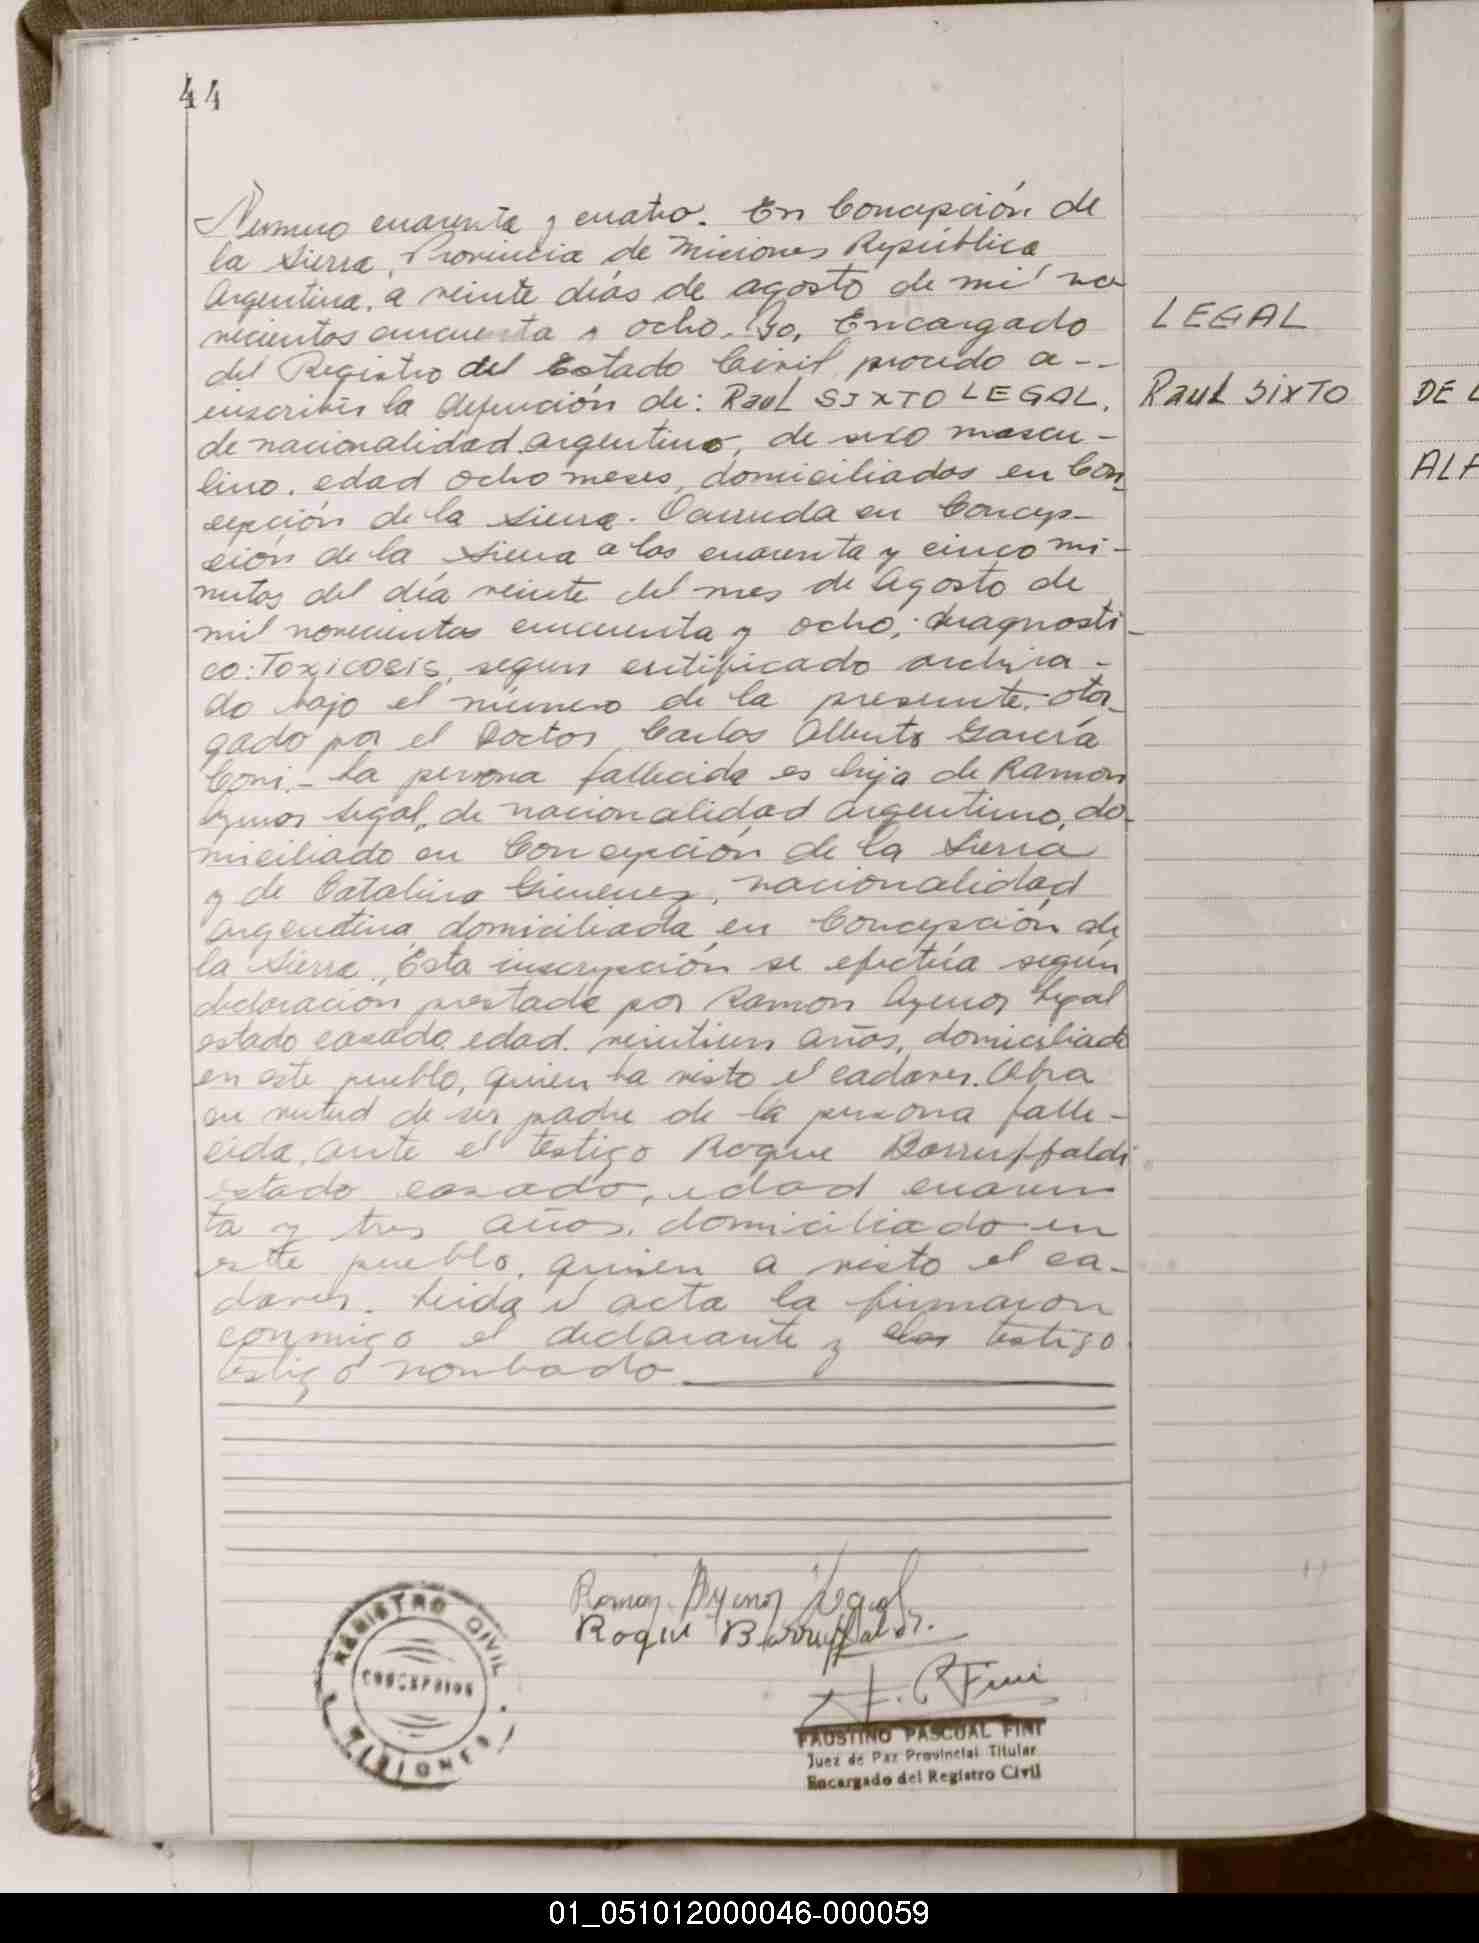 44
Numero cuarenta y cuatro. En Concepción de
la Sierra, Provincia de Miciones República
Argentina, a veinte días de agosto de mil no
vecientos cincuenta y ocho. Yo, Encargado
del Registro del Estado Civil, procedo a --
inscribir la defunción de: Raul SIXTO LEGAL.
de nacionalidad argentino, de sexo mascu-
lino. edad ocho meses, domiciliados en Con-
cepción de la Sierra. Ocurrida en Concep-
ción de la Sierra a las cuarenta y cinco mi-
nutos del día veinte del mes de Agosto de
mil novecientos cincuenta y ocho; diagnosti-
co: Toxicosis, segun certificado archiva-
do bajo el número de la presente. otor-
gado por el Doctor Carlos Alberto García
Coni.- La persona fallecida es hija de Ramon
Agenor Legal, de nacionalidad argentino, do-
miciliado en Concepción de la Sierra
y de Catalina Gimenez, nacionalidad
argentina domiciliada en Concepción de
la Sierra, Esta inscripción se efectúa según
declaración prestada por Ramon Agenor Legal
estado casado, edad. veintiun años, domiciliado
en este pueblo, quien ha visto el cadaver. Obra
en virtud de ser padre de la persona falle-
cida, ante el testigo Roque Barruffaldi
estado casado, edad cuaren
ta y tres años, domiciliado en
este pueblo, quien a visto el ca-
daver. Leida el acta la firmaron
conmigo el declarante y testigo
testigo nonbado
LEGAL
Raul SIXTO
DE L
ALF
Ramon Agenor Legal
Roque Barruffaldi.
F. P. Fini
REGISTRO CIVIL
CONCEPCION
MISIONES
FAUSTINO PASCUAL FINI
Juez de Paz Provincial Titular
Encargado del Registro Civil
01_051012000046-000059